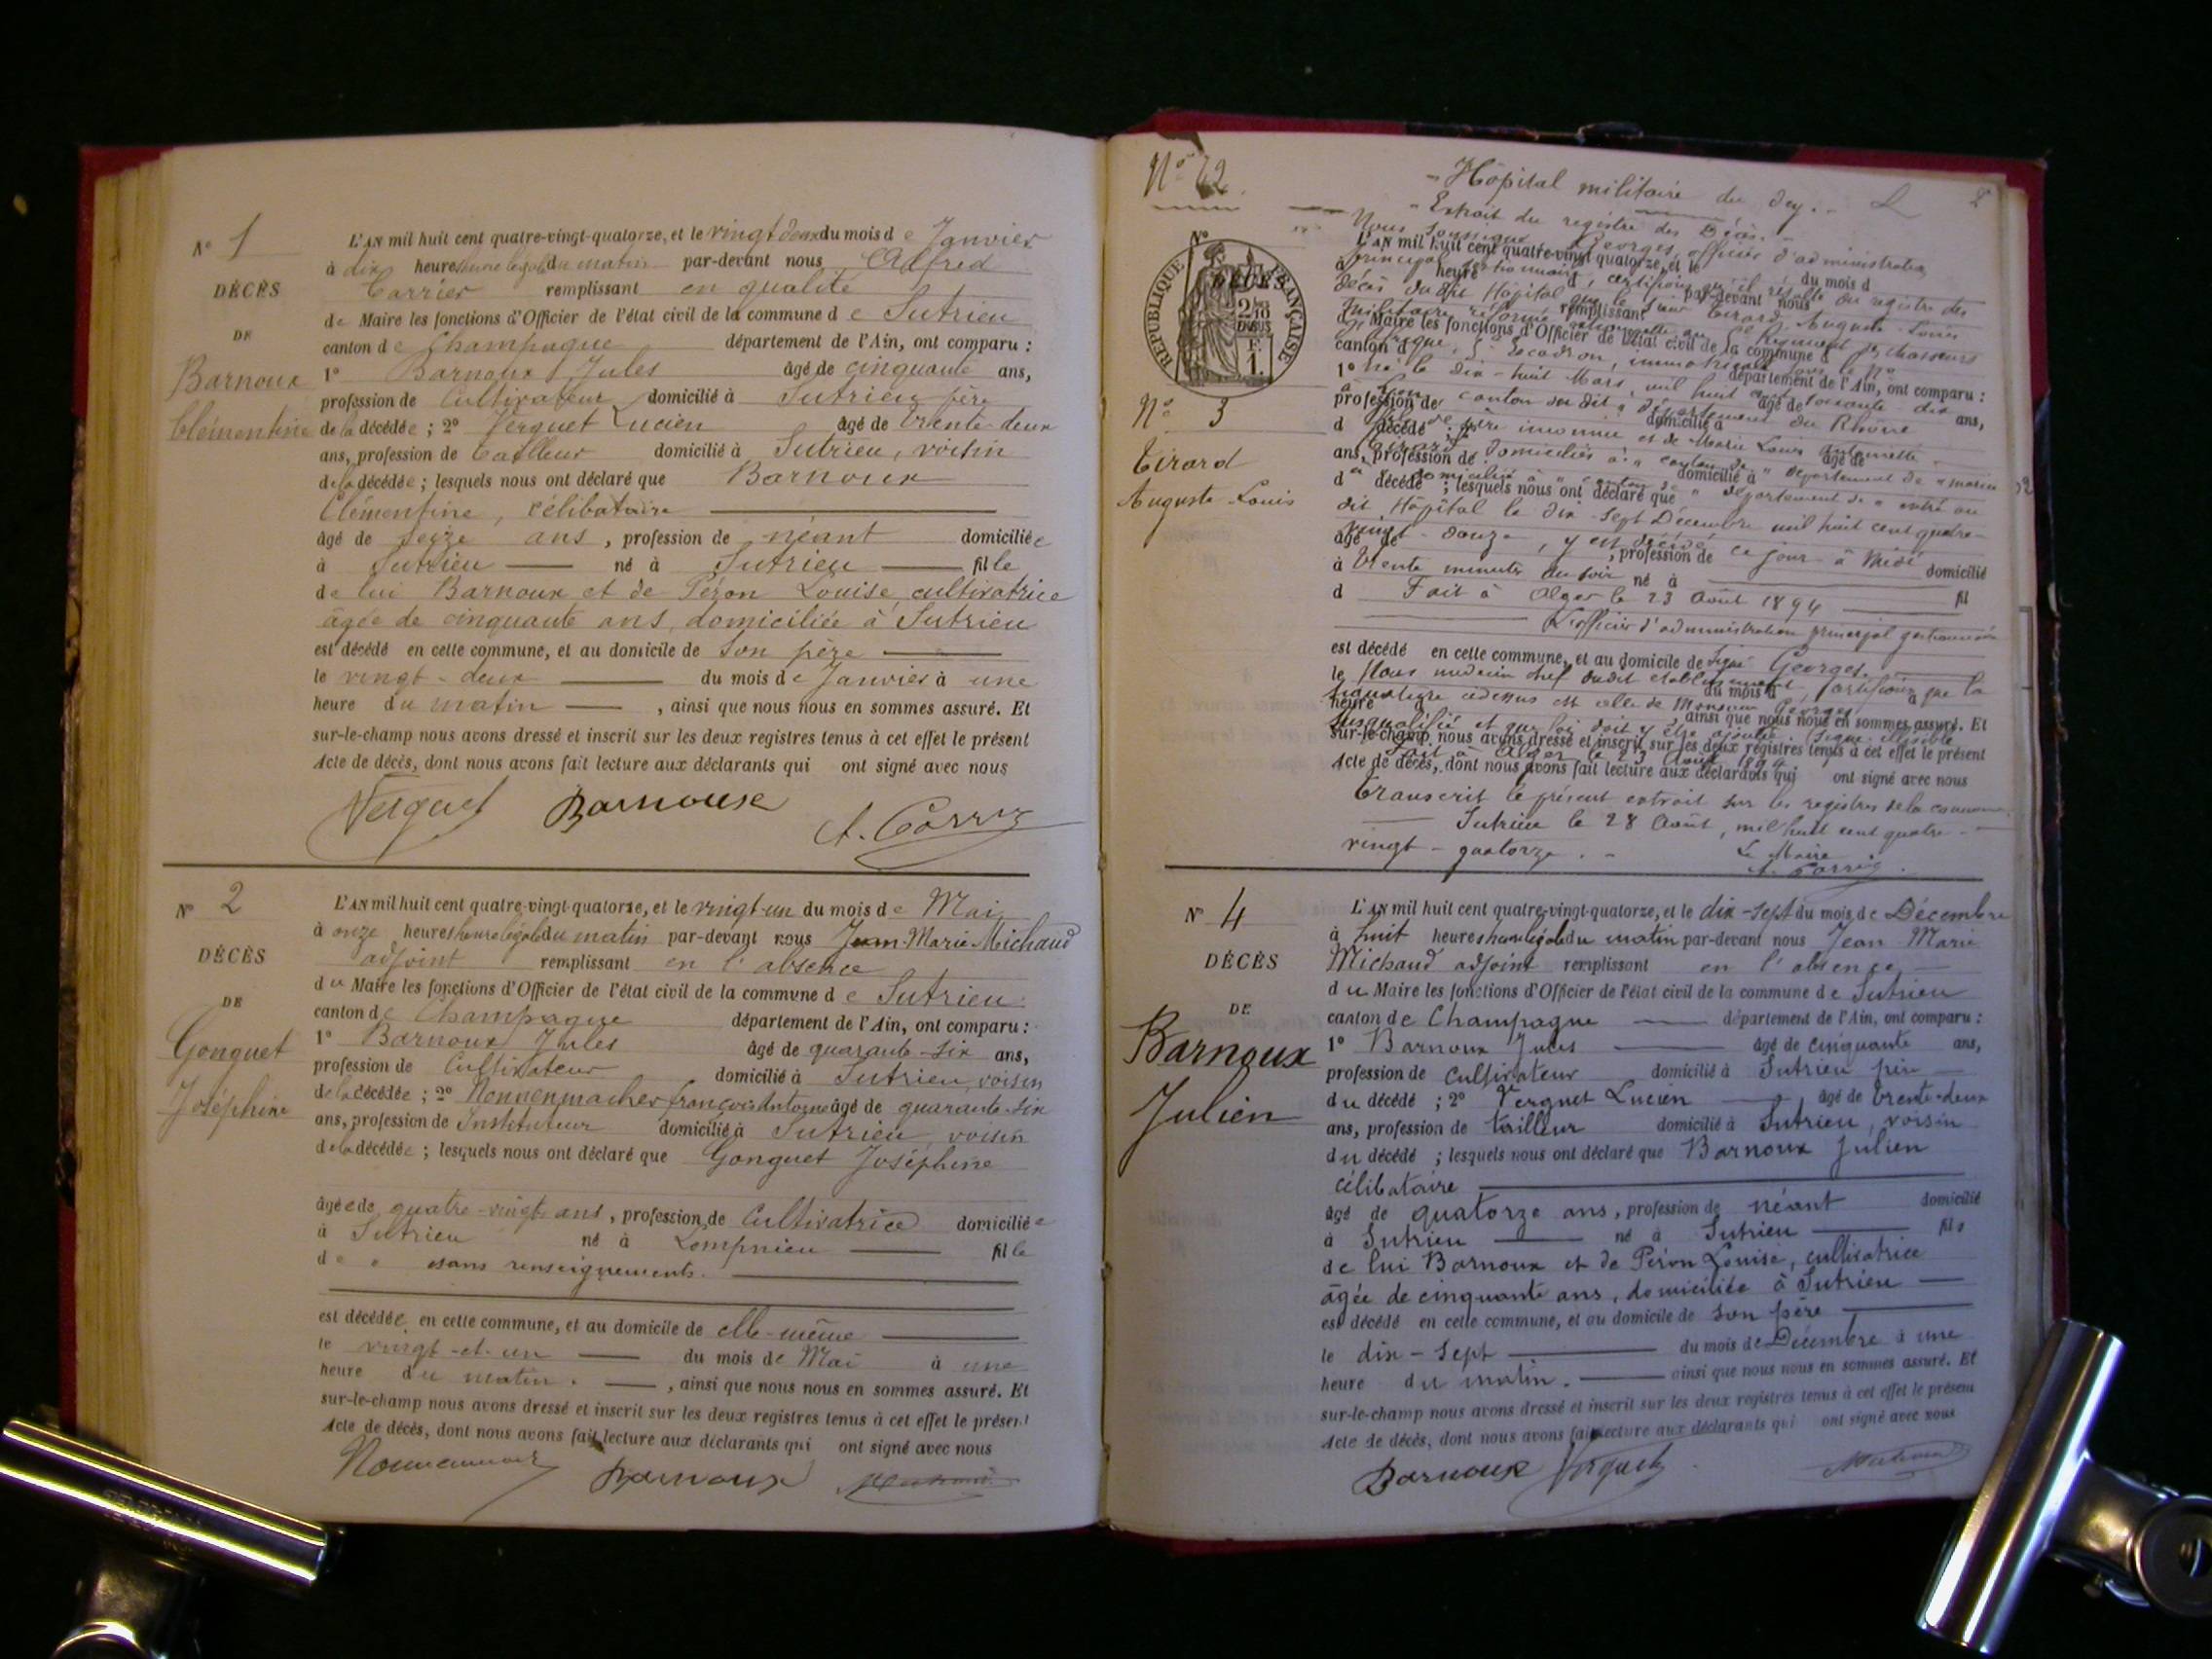 N° 1
DÉCÈS
DE
Barnoux
Clémentine
L'AN mil huit cent quatre-vingt-quatorze, et le vingt deux du mois de Janvier
à dix heures heure légale du matin par-devant nous Alfred
Carrier remplissant en qualité
de Maire les fonctions d'Officier de l'état civil de la commune de Sutrieu
canton de Champagne département de l'Ain, ont comparu :
1° Barnoux Jules âgé de cinquante ans,
profession de Cultivateur domicilié à Sutrieu père
de la décédée ; 2° Verguet Lucien âgé de trente-deux
ans, profession de tailleur domicilié à Sutrieu, voisin
de la décédée ; lesquels nous ont déclaré que Barnoux
Clémentine, célibataire
âgé de seize ans, profession de néant domiciliée
à Sutrieu né à Sutrieu fille
de lui Barnoux et de Péron Louise, cultivatrice
âgée de cinquante ans, domiciliée à Sutrieu
est décédé en cette commune, et au domicile de son père
le vingt-deux du mois de Janvier à une
heure du matin, ainsi que nous nous en sommes assuré. Et
sur-le-champ nous avons dressé et inscrit sur les deux registres tenus à cet effet le présent
Acte de décès, dont nous avons fait lecture aux déclarants qui ont signé avec nous
Verguet Barnoux
N° 2
DÉCÈS
DE
Gonguet
Joséphine
L'AN mil huit cent quatre-vingt-quatorze, et le vingt-un du mois de Mai
à onze heures heure légale du matin par-devant nous Jean-Marie Michaud
adjoint remplissant en l'absence
du Maire les fonctions d'Officier de l'état civil de la commune de Sutrieu
canton de Champagne département de l'Ain, ont comparu :
1° Barnoux Jules âgé de quarante-six ans,
profession de Cultivateur domicilié à Sutrieu, voisin
de la décédée ; 2° Nonnenmacher françois Antoine âgé de quarante-six
ans, profession de Instituteur domicilié à Sutrieu, voisin
de la décédée ; lesquels nous ont déclaré que Gonguet Joséphine
âgée de quatre-vingt ans, profession de Cultivatrice domiciliée
à Sutrieu né à Lompnieu fille
de " sans renseignements.
est décédée en cette commune, et au domicile de elle-même
le vingt-et-un du mois de Mai à une
heure du matin. , ainsi que nous nous en sommes assuré. Et
sur-le-champ nous avons dressé et inscrit sur les deux registres tenus à cet effet le présent
Acte de décès, dont nous avons fait lecture aux déclarants qui ont signé avec nous
Barnoux
N° 72
Hôpital militaire du Dey.
Extrait du registre des Décès.
N°
DÉCÈS
RÉPUBLIQUE FRANÇAISE
N° 3
Tirard
Auguste Louis
Nous soussigné Georges, officier d'administration
L'AN mil huit cent quatre-vingt-quatorze, et le du mois d
principal gestionnaire, certifions qu'il résulte du registre des
à heure d par-devant nous
décès dudit Hôpital que le sieur Tirard, Auguste Louis
remplissant
militaire réformé
d Maire les fonctions d'Officier de l'état civil de la commune d
d'Afrique, 5e Escadron, immatriculé sous le N°
canton d département de l'Ain, ont comparu :
1° né le dix-huit Mars mil huit cent soixante-dix âgé de ans,
à Lyon canton du dit, département du Rhône
profession de domicilié à
d décédé ; 2° fils de père inconnu et de Marie Louis Antoinette âgé de
Tirard domiciliés à " canton de " département de "
ans, profession de domicilié à
d décédé ; lesquels nous ont déclaré que
domicilié à " canton de " département de " entré au
dit Hôpital le dix-sept Décembre mil huit cent quatre-
vingt-douze, y est décédé ce jour à Midi
âgé de , profession de domicilié
à trente minutes du soir né à
d Fait à Alger le 23 Août 1894 fil
L'officier d'administration principal gestionnaire
est décédé en cette commune, et au domicile de signé Georges.
le Nous médecin chef dudit établissement certifions que la
du mois d à
signature cidessus est celle de Monsieur Georges
heure , ainsi que nous nous en sommes assuré. Et
susqualifié et que foi doit y être ajoutée. Signé illisible
sur-le-champ nous avons dressé et inscrit sur les deux registres tenus à cet effet le présent
Fait à Alger le 23 Août 1894
Acte de décès, dont nous avons fait lecture aux déclarants qui ont signé avec nous
Transcrit le présent extrait sur les registres de la commune
Sutrieu le 28 Août, mil huit cent quatre-
vingt-quatorze.
Le Maire
N° 4
DÉCÈS
DE
Barnoux
Julien
L'AN mil huit cent quatre-vingt-quatorze, et le dix-sept du mois de Décembre
à huit heures heure légale du matin par-devant nous Jean Marie
Michaud adjoint remplissant en l'absence
du Maire les fonctions d'Officier de l'état civil de la commune de Sutrieu
canton de Champagne département de l'Ain, ont comparu :
1° Barnoux Jules âgé de cinquante ans,
profession de Cultivateur domicilié à Sutrieu père
du décédé ; 2° Verguet Lucien âgé de trente-deux
ans, profession de tailleur domicilié à Sutrieu, voisin
du décédé ; lesquels nous ont déclaré que Barnoux Julien
célibataire
âgé de quatorze ans, profession de néant domicilié
à Sutrieu né à Sutrieu fils
de lui Barnoux et de Péron Louise, cultivatrice
âgée de cinquante ans, domiciliée à Sutrieu
est décédé en cette commune, et au domicile de son père
le dix-sept du mois de Décembre à une
heure du matin. ainsi que nous nous en sommes assuré. Et
sur-le-champ nous avons dressé et inscrit sur les deux registres tenus à cet effet le présent
Acte de décès, dont nous avons fait lecture aux déclarants qui ont signé avec nous
Barnoux Verguet